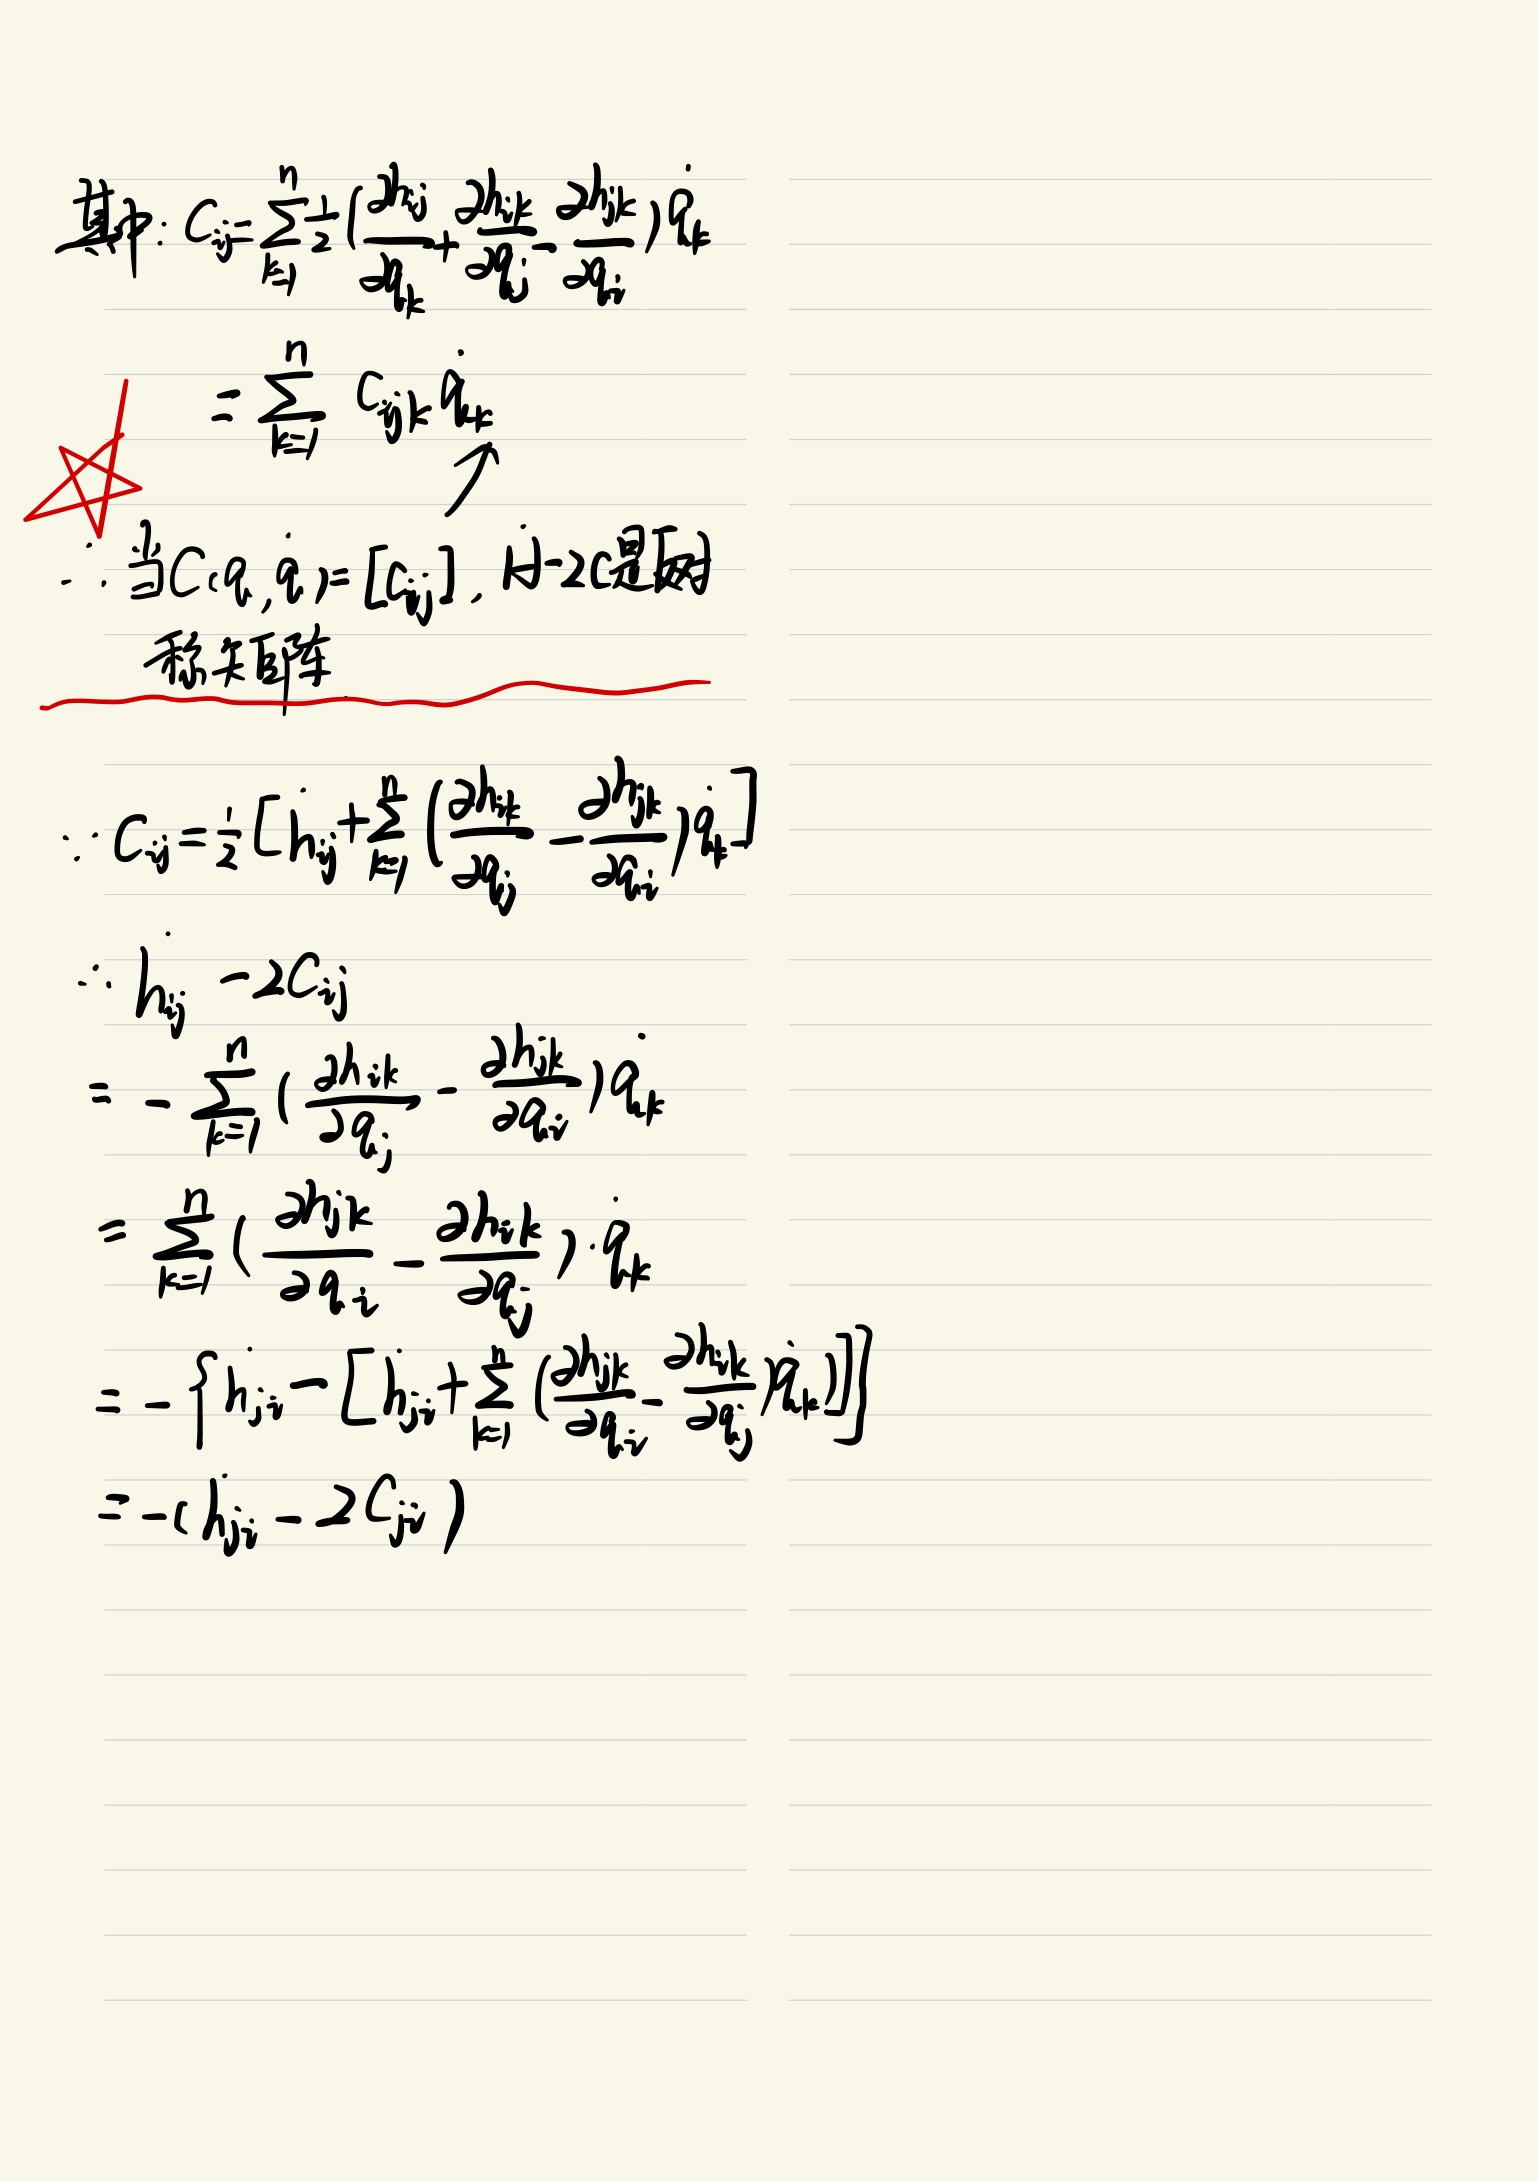 其中: C_{ij} = \sum_{k=1}^{n} \frac{1}{2} ( \frac{∂h_{ij}}{∂q_k} + \frac{∂h_{ik}}{∂q_j} - \frac{∂h_{jk}}{∂q_i} ) \dot{q}_k
= \sum_{k=1}^{n} C_{ijk} \dot{q}_k
∴ 当C(q, \dot{q}) = [C_{ij}], \dot{H}-2C是反对
称矩阵
∵ C_{ij} = \frac{1}{2} [ \dot{h}_{ij} + \sum_{k=1}^{n} ( \frac{∂h_{ik}}{∂q_j} - \frac{∂h_{jk}}{∂q_i} ) \dot{q}_k ]
∴ \dot{h}_{ij} - 2C_{ij}
= - \sum_{k=1}^{n} ( \frac{∂h_{ik}}{∂q_j} - \frac{∂h_{jk}}{∂q_i} ) \dot{q}_k
= \sum_{k=1}^{n} ( \frac{∂h_{jk}}{∂q_i} - \frac{∂h_{ik}}{∂q_j} ) · \dot{q}_k
= - { \dot{h}_{ji} - [ \dot{h}_{ji} + \sum_{k=1}^{n} ( \frac{∂h_{jk}}{∂q_i} - \frac{∂h_{ik}}{∂q_j} ) \dot{q}_k ) ] }
= - ( \dot{h}_{ji} - 2C_{ji} )